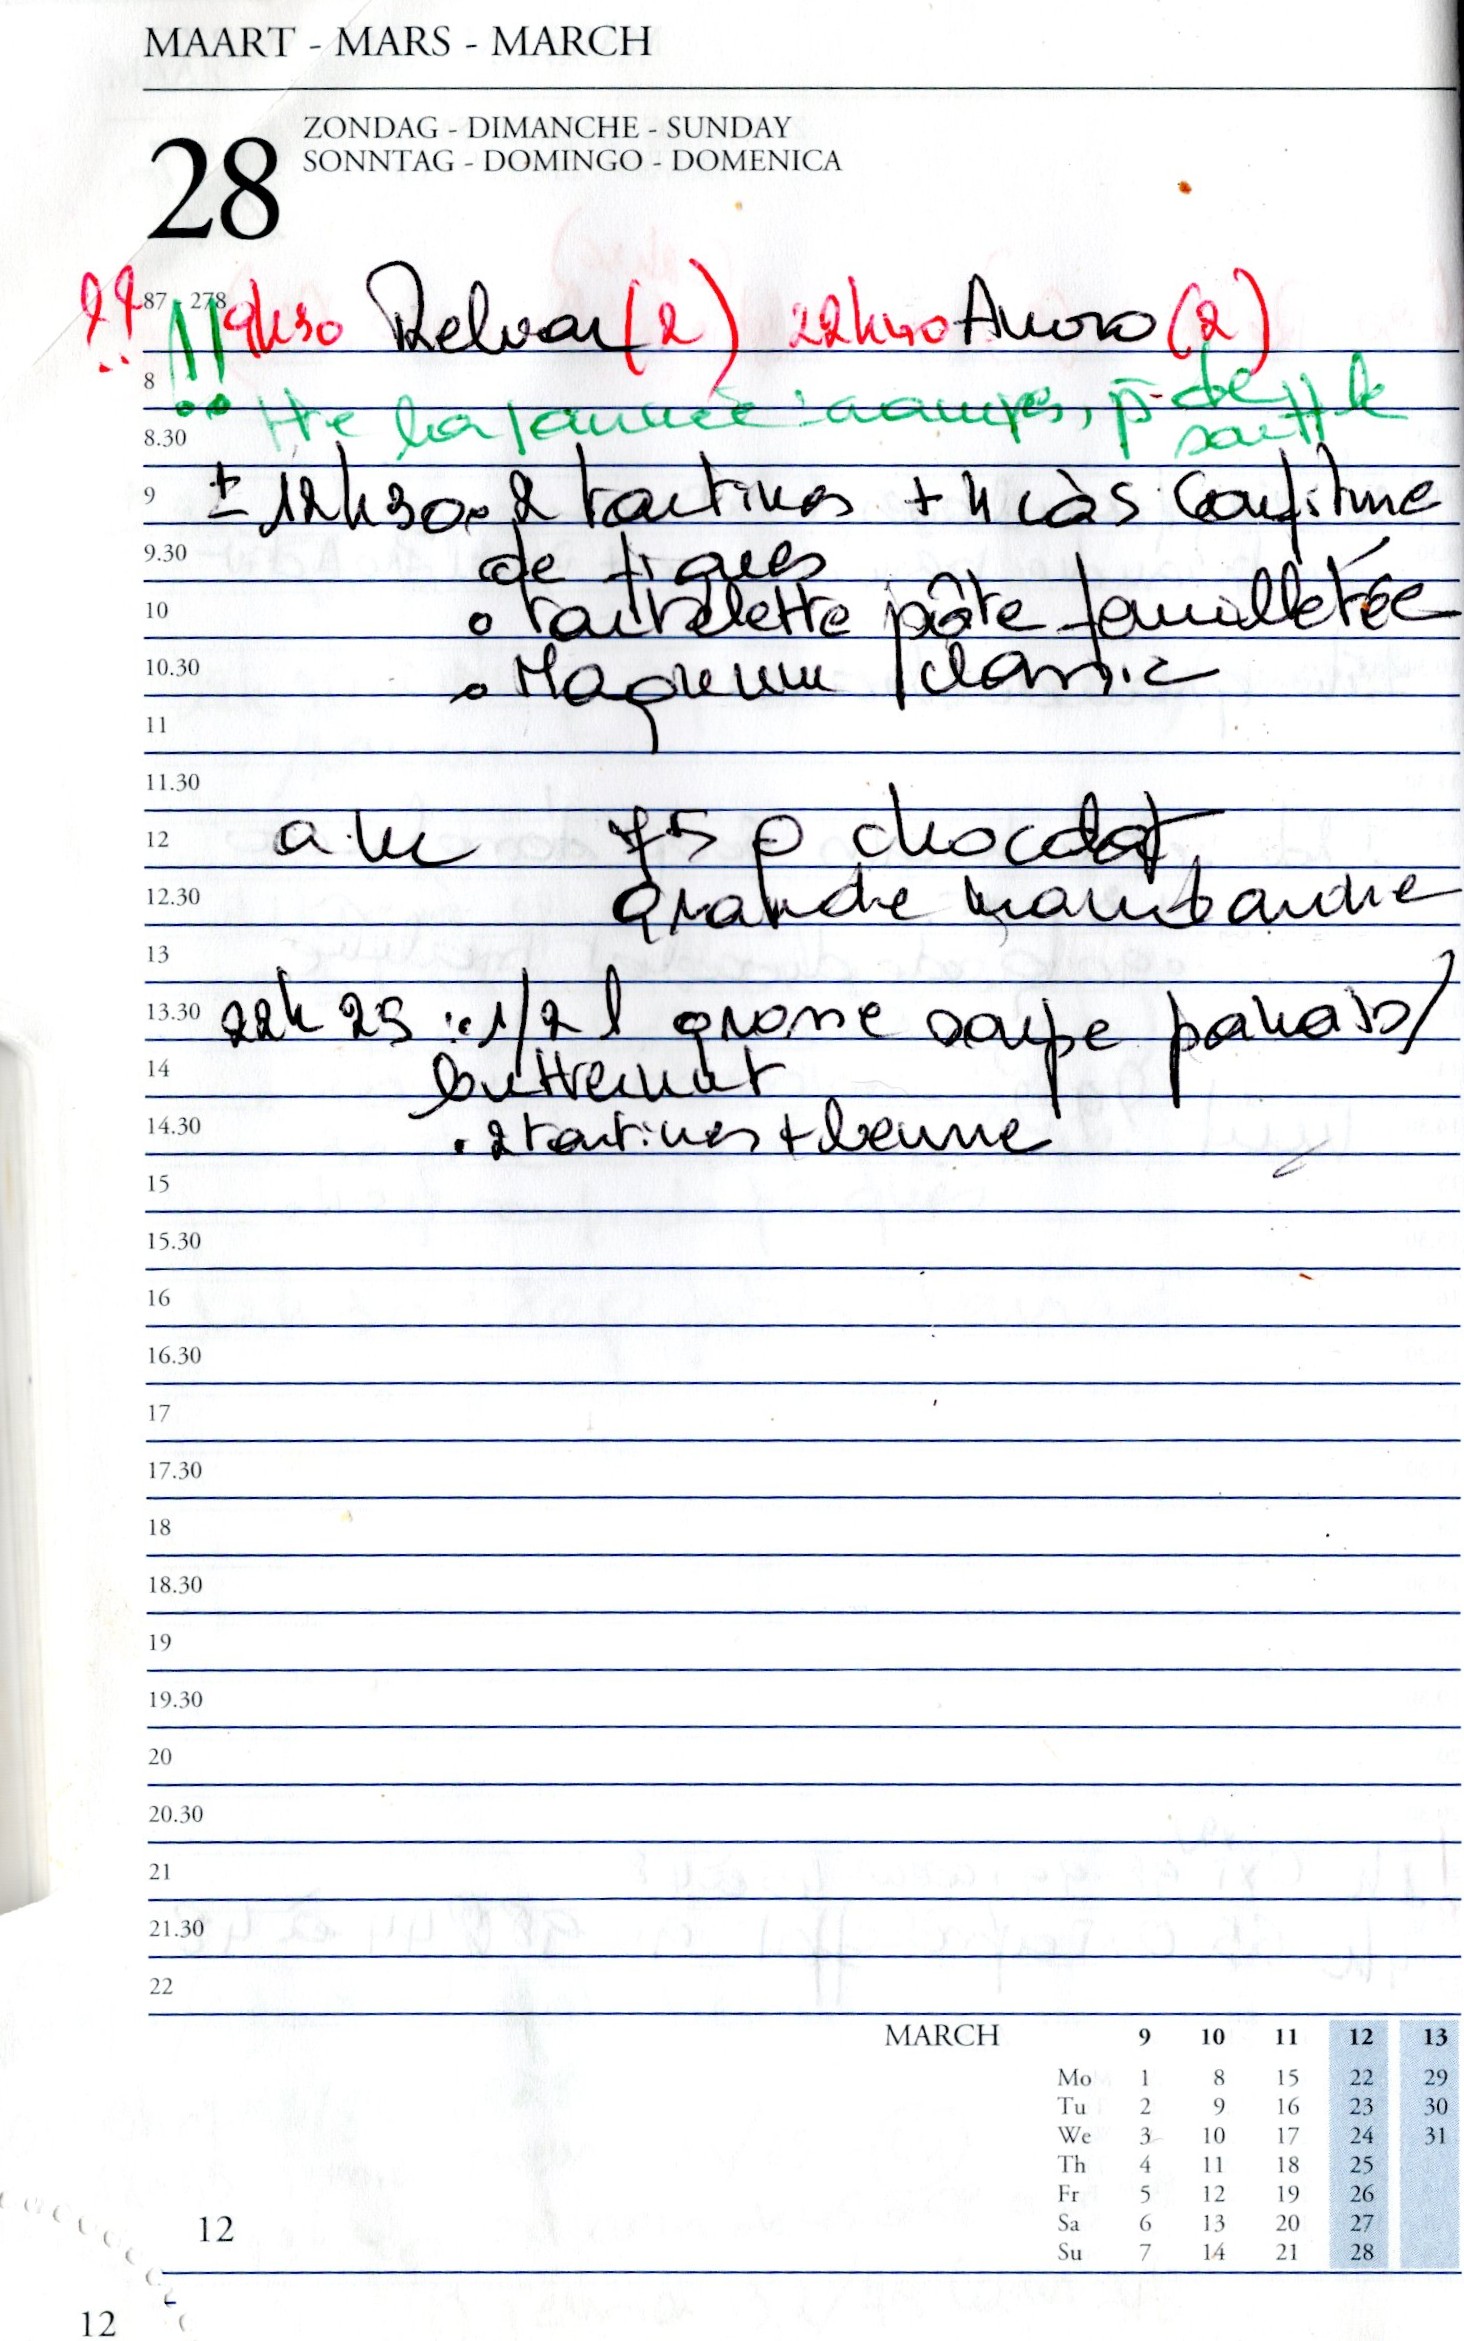 MAART - MARS - MARCH
28
ZONDAG - DIMANCHE - SUNDAY
SONNTAG - DOMINGO - DOMENICA
87 - 278
!! !! 9h30 Relvar (2) 22h40 Amoro (2)
8
tte la journée : crampes, p- de
8.30
souffle
9
± 12h30 : 2 tartines + 4 càs confiture
9.30
de figues
10
o tartelette pâte feuilletée
10.30
o Magnum classic
11
11.30
12
75 g chocolat
12.30
grande mambande
13
13.30
22h25 : . 1/2 l grosse soupe panais/
14
butternut
14.30
. 2 tartines + beurre
15
15.30
16
16.30
17
17.30
18
18.30
19
19.30
20
20.30
21
21.30
22
MARCH 9 10 11 12 13
Mo 1 8 15 22 29
Tu 2 9 16 23 30
We 3 10 17 24 31
Th 4 11 18 25
Fr 5 12 19 26
Sa 6 13 20 27
Su 7 14 21 28
12
12